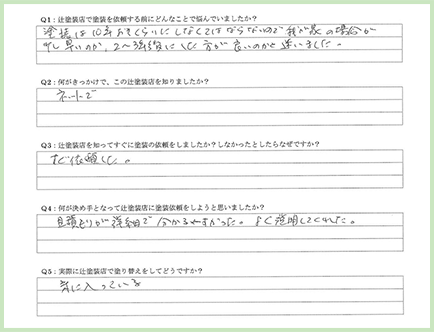 Q1：辻塗装店で塗装を依頼する前にどんなことで悩んでいましたか？
塗装は10年おきくらいにしなくてはならないので我が家の場合が
少し早いのか、2～3年後にした方が良いのかと迷いました。
Q2：何がきっかけで、この辻塗装店を知りましたか？
ネットで
Q3：辻塗装店を知ってすぐに塗装の依頼をしましたか？しなかったとしたらなぜですか？
すぐ依頼した。
Q4：何が決め手となって辻塗装店に塗装依頼をしようと思いましたか？
見積もりが詳細で分かりやすかった。よく説明してくれた。
Q5：実際に辻塗装店で塗り替えをしてどうですか？
気に入っている